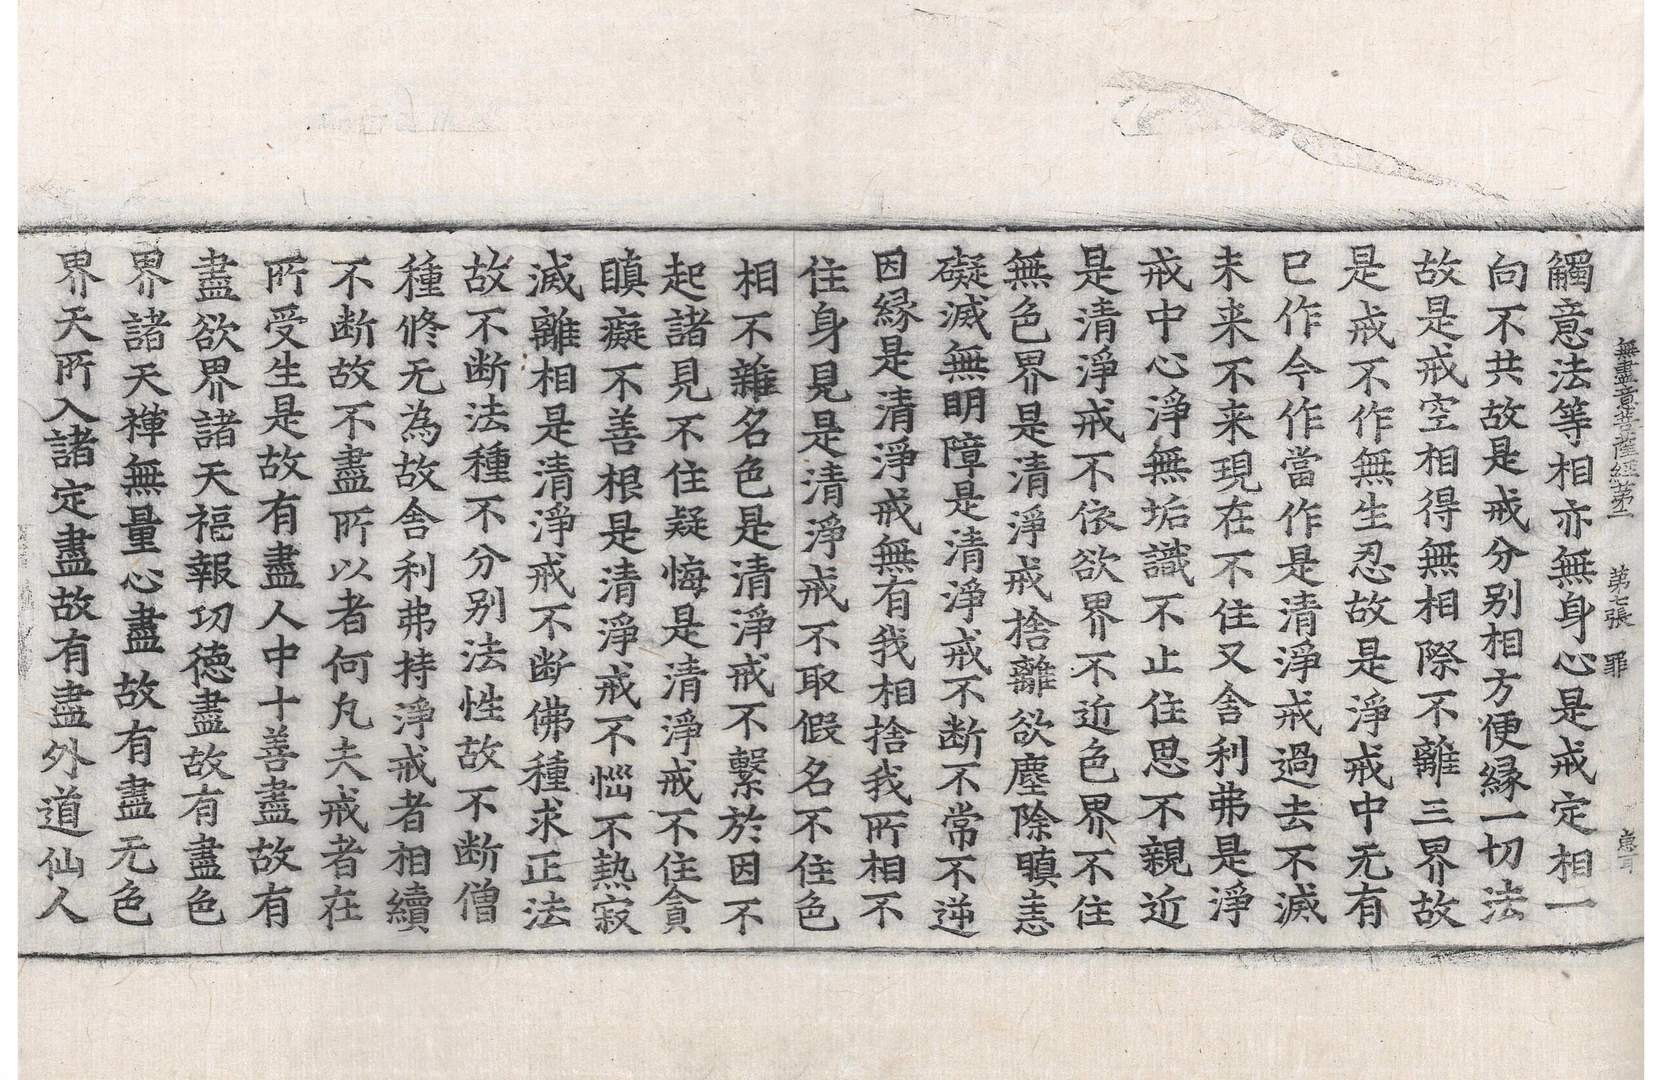 無盡意菩薩經第二 第七張 罪
觸意法等相亦無身心是戒定相一
向不共故是戒分别相方便縁一切法
故是戒空相得無相際不離三界故
是戒不作無生忍故是淨戒中无有
已作今作當作是清淨戒過去不滅
未来不来現在不住又舎利弗是淨
戒中心淨無垢識不止住思不親近
是清淨戒不依欲界不近色界不住
無色界是清淨戒捨離欲塵除瞋恚
礙滅無明障是清淨戒不断不常不逆
因縁是清淨戒無有我相捨我所相不
住身見是清淨戒不取假名不住色
相不雜名色是清淨戒不繫於因不
起諸見不住疑悔是清淨戒不住貪
瞋癡不善根是清淨戒不惱不熱寂
滅離相是清淨戒不断佛種求正法
故不断法種不分别法性故不断僧
種修无為故舎利弗持淨戒者相續
不断故不盡所以者何凡夫戒者在
所受生是故有盡人中十善盡故有
盡欲界諸天福報功德盡故有盡色
界諸天禅無量心盡故有盡无色
界天所入諸定盡故有盡外道仙人